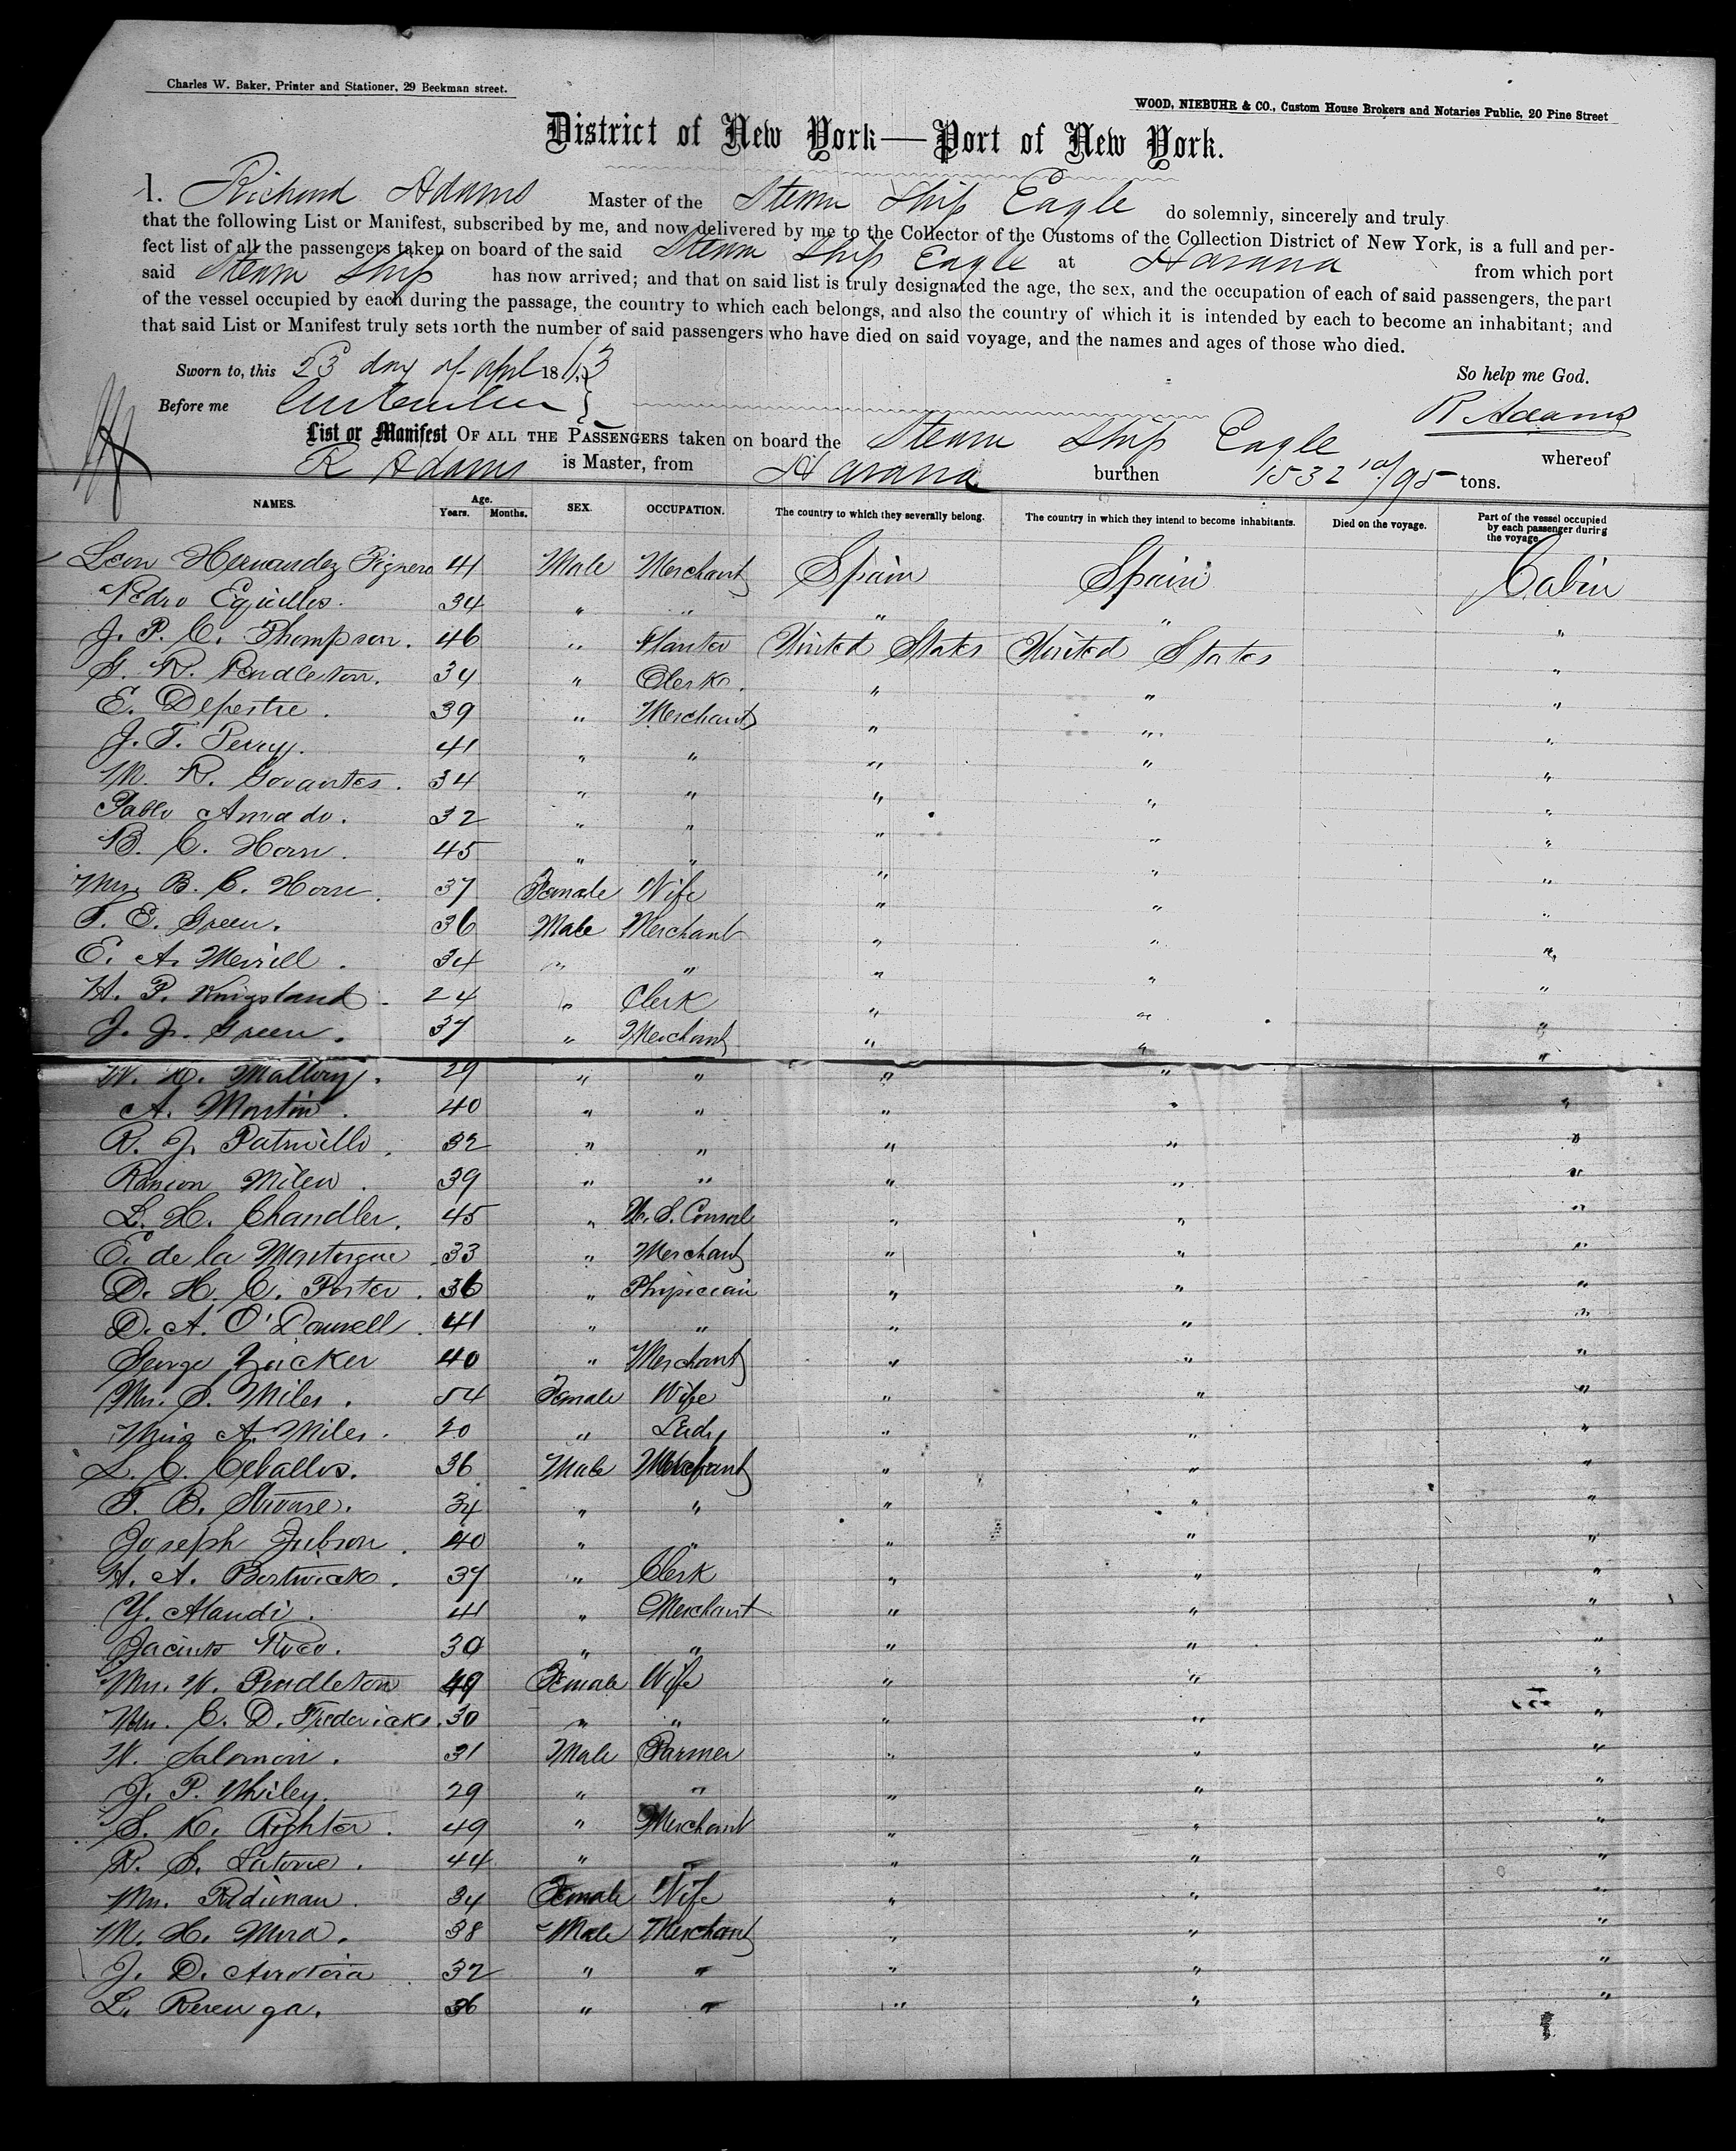 Charles W. Baker, Printer and Stationer, 29 Beekman street.
WOOD, NIEBUHR & CO., Custom House Brokers and Notaries Public, 20 Pine Street
District of New York—Port of New York.
I. Richard Adams Master of the Steam Ship Eagle do solemnly, sincerely and truly
that the following List or Manifest, subscribed by me, and now delivered by me to the Collector of the Customs of the Collection District of New York, is a full and per-
fect list of all the passengers taken on board of the said Steam Ship Eagle at Havana from which port
said Steam Ship has now arrived; and that on said list is truly designated the age, the sex, and the occupation of each of said passengers, the part
of the vessel occupied by each during the passage, the country to which each belongs, and also the country of which it is intended by each to become an inhabitant; and
that said List or Manifest truly sets forth the number of said passengers who have died on said voyage, and the names and ages of those who died.
Sworn to, this 23 day of April 18 So help me God.
Before me R Adams
List or Manifest OF ALL THE PASSENGERS taken on board the Steam Ship Eagle whereof
R Adams is Master, from Havana burthen 1532 10/95 tons.
NAMES. Age. Years. Months. SEX. OCCUPATION. The country to which they severally belong. The country in which they intend to become inhabitants. Died on the voyage. Part of the vessel occupied by each passenger during the voyage
Leon Hernandez 41 Male Merchant Spain Spain Cabin
Pedro Eguilles. 34 " " " " "
J. P. C. Thompson. 46 " Planter United States United States "
G. R. Pendleton. 34 " Clerk. " " "
E. Depestre. 39 " Merchant " " "
J. T. Perry. 41 " " " " "
M. R. Govantes. 34 " " " " "
Pablo Amado. 32 " " " " "
B. C. Horn. 45 " " " " "
Mrs B. C. Horn. 37 Female Wife " " "
T. E. Green. 36 Male Merchant " " "
E. A. Merrill. 34 " " " " "
H. P. Kingsland. 24 " Clerk " " "
J. J. Green. 37 " Merchant " " "
W. H. Mallory. 29 " " " " "
A. Martin. 40 " " " " "
R. J. 32 " " " " "
39 " " " " "
L. H. Chandler. 45 " U. S. Consul " " "
E. de la 33 " Merchant " " "
D. H. C. Porter. 36 " Physician " " "
D. A. O'Donnell. 41 " " " " "
George Zucker 40 " Merchant " " "
Mrs. S. Miles. 54 Female Wife " " "
Miss A. Miles. 20 " Lady " " "
L. C. Ceballos. 36 Male Merchant " " "
T. B. 34 " " " " "
Joseph 40 " " " " "
H. A. Bostwick. 37 " Clerk " " "
Y. Alandi. 41 " Merchant " " "
Jacinto 30 " " " " "
Mrs. W. Pendleton 49 Female Wife " " "
Mrs. C. D. Fredericks. 30 " " " " "
W. Salomon. 31 Male Farmer " " "
J. P. Whiley. 29 " " " " "
S. K. Righter. 49 " Merchant " " "
R. S. Latorre. 44 " " " " "
Mrs. 34 Female Wife " " "
M. H. Mora. 38 Male Merchant " " "
J. D. 32 " " " " "
L. Revenga. 36 " " " " "